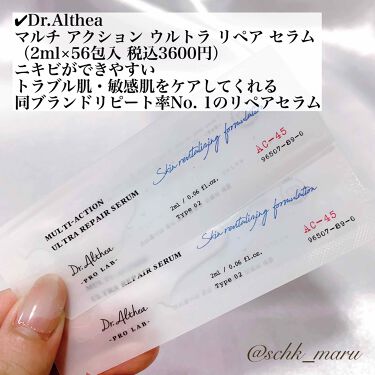 ✔Dr.Althea
マルチ アクション ウルトラ リペア セラム
（2ml×56包入 税込3600円）
ニキビができやすい
トラブル肌・敏感肌をケアしてくれる
同ブランドリピート率No. 1のリペアセラム
MULTI-ACTION
ULTRA REPAIR SERUM
Dr.Althea
-PRO LAB-
Skin revitalizing formulation
2ml / 0.06 fl.oz.
Type 02
AC-45
96507-89-0
MULTI-ACTION
ULTRA REPAIR SERUM
Dr.Althea
-PRO LAB-
Skin revitalizing formulation
2ml / 0.06 fl.oz.
Type 02
AC-45
96507-89-0
@schk_maru